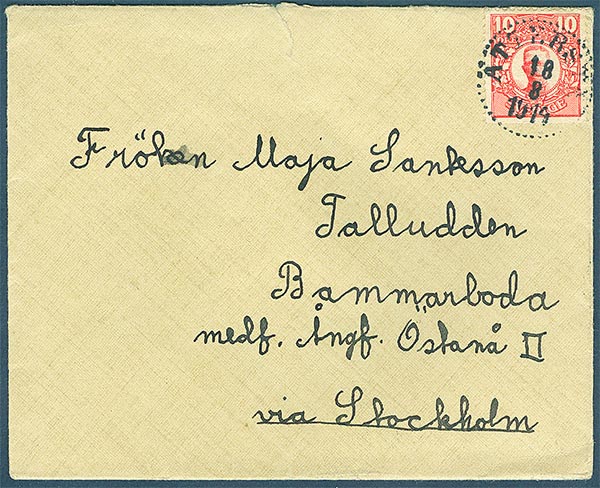 10 10
18
8
1914
Fröken Maja Sanksson
Talludden
Bammarboda
medf. Ångf. Östanå II
via Stockholm